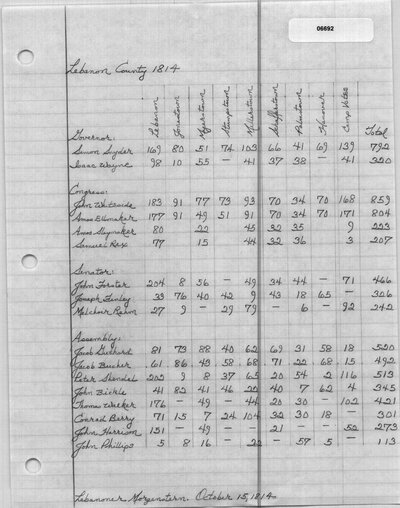 06692
Lebanon County 1814
Lebanon Jonestown Myerstown Stumpstown Millerstown Shaffertown Palmtown Hanover Camp Votes
Governor: Total
Simon Snyder 169 80 51 74 103 66 41 69 139 792
Isaac Wayne 98 10 55 — 41 37 38 — 41 320
Congress:
John Whiteside 183 91 77 73 93 70 34 70 168 859
Amos Ellmaker 177 91 49 51 91 70 34 70 171 804
Amos Slaymaker 80 22 45 32 35 9 223
Samuel Rex 77 15 44 32 36 3 207
Senator:
John Forster 204 8 56 — 49 34 44 — 71 466
Joseph Finley 33 76 40 42 9 43 18 65 — 326
Melchoir Rahm 27 9 — 29 79 — 6 — 92 242
Assembly:
Jacob Goodhard 81 73 88 40 62 69 31 58 18 520
Jacob Bucher 61 86 43 58 68 71 22 68 15 492
Peter Shindel 202 9 8 37 65 20 54 2 116 513
John Bickle 41 82 41 46 22 40 7 62 4 345
Thomas Weeker 176 — 49 — 44 20 30 — 102 421
Conrad Berry 71 15 7 24 104 32 30 18 — 301
John Harrison 151 — 49 — — 21 — — 52 273
John Phillips 5 8 16 — 22 — 57 5 — 113
Lebanoner Morgenstern. October 15, 1814